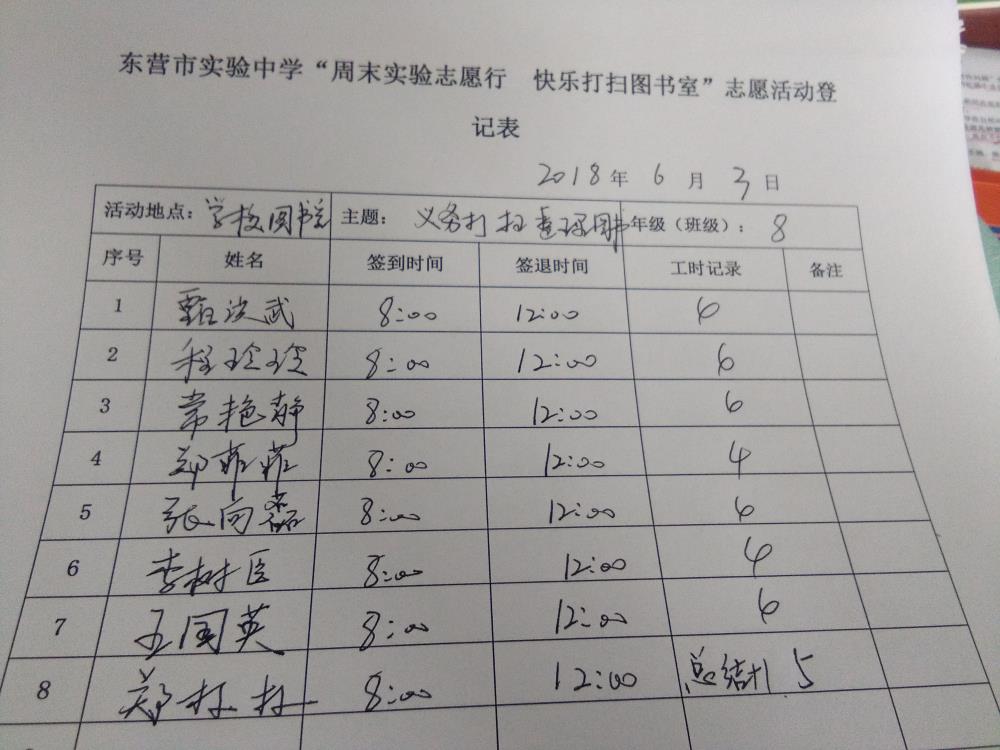 东营市实验中学“周末实验志愿行 快乐打扫图书室”志愿活动登
记表
2018年 6 月 3 日
活动地点：学校图书室 主题： 义务打扫整理图书 年级（班级）： 8
序号 姓名 签到时间 签退时间 工时记录 备注
1 甄洪武 8:00 12:00 6
2 程玲玲 8:00 12:00 6
3 常艳静 8:00 12:00 6
4 郑菲菲 8:00 12:00 4
5 张向磊 8:00 12:00 6
6 李树臣 8:00 12:00 4
7 王国英 8:00 12:00 6
8 郑 8:00 12:00 总结 5